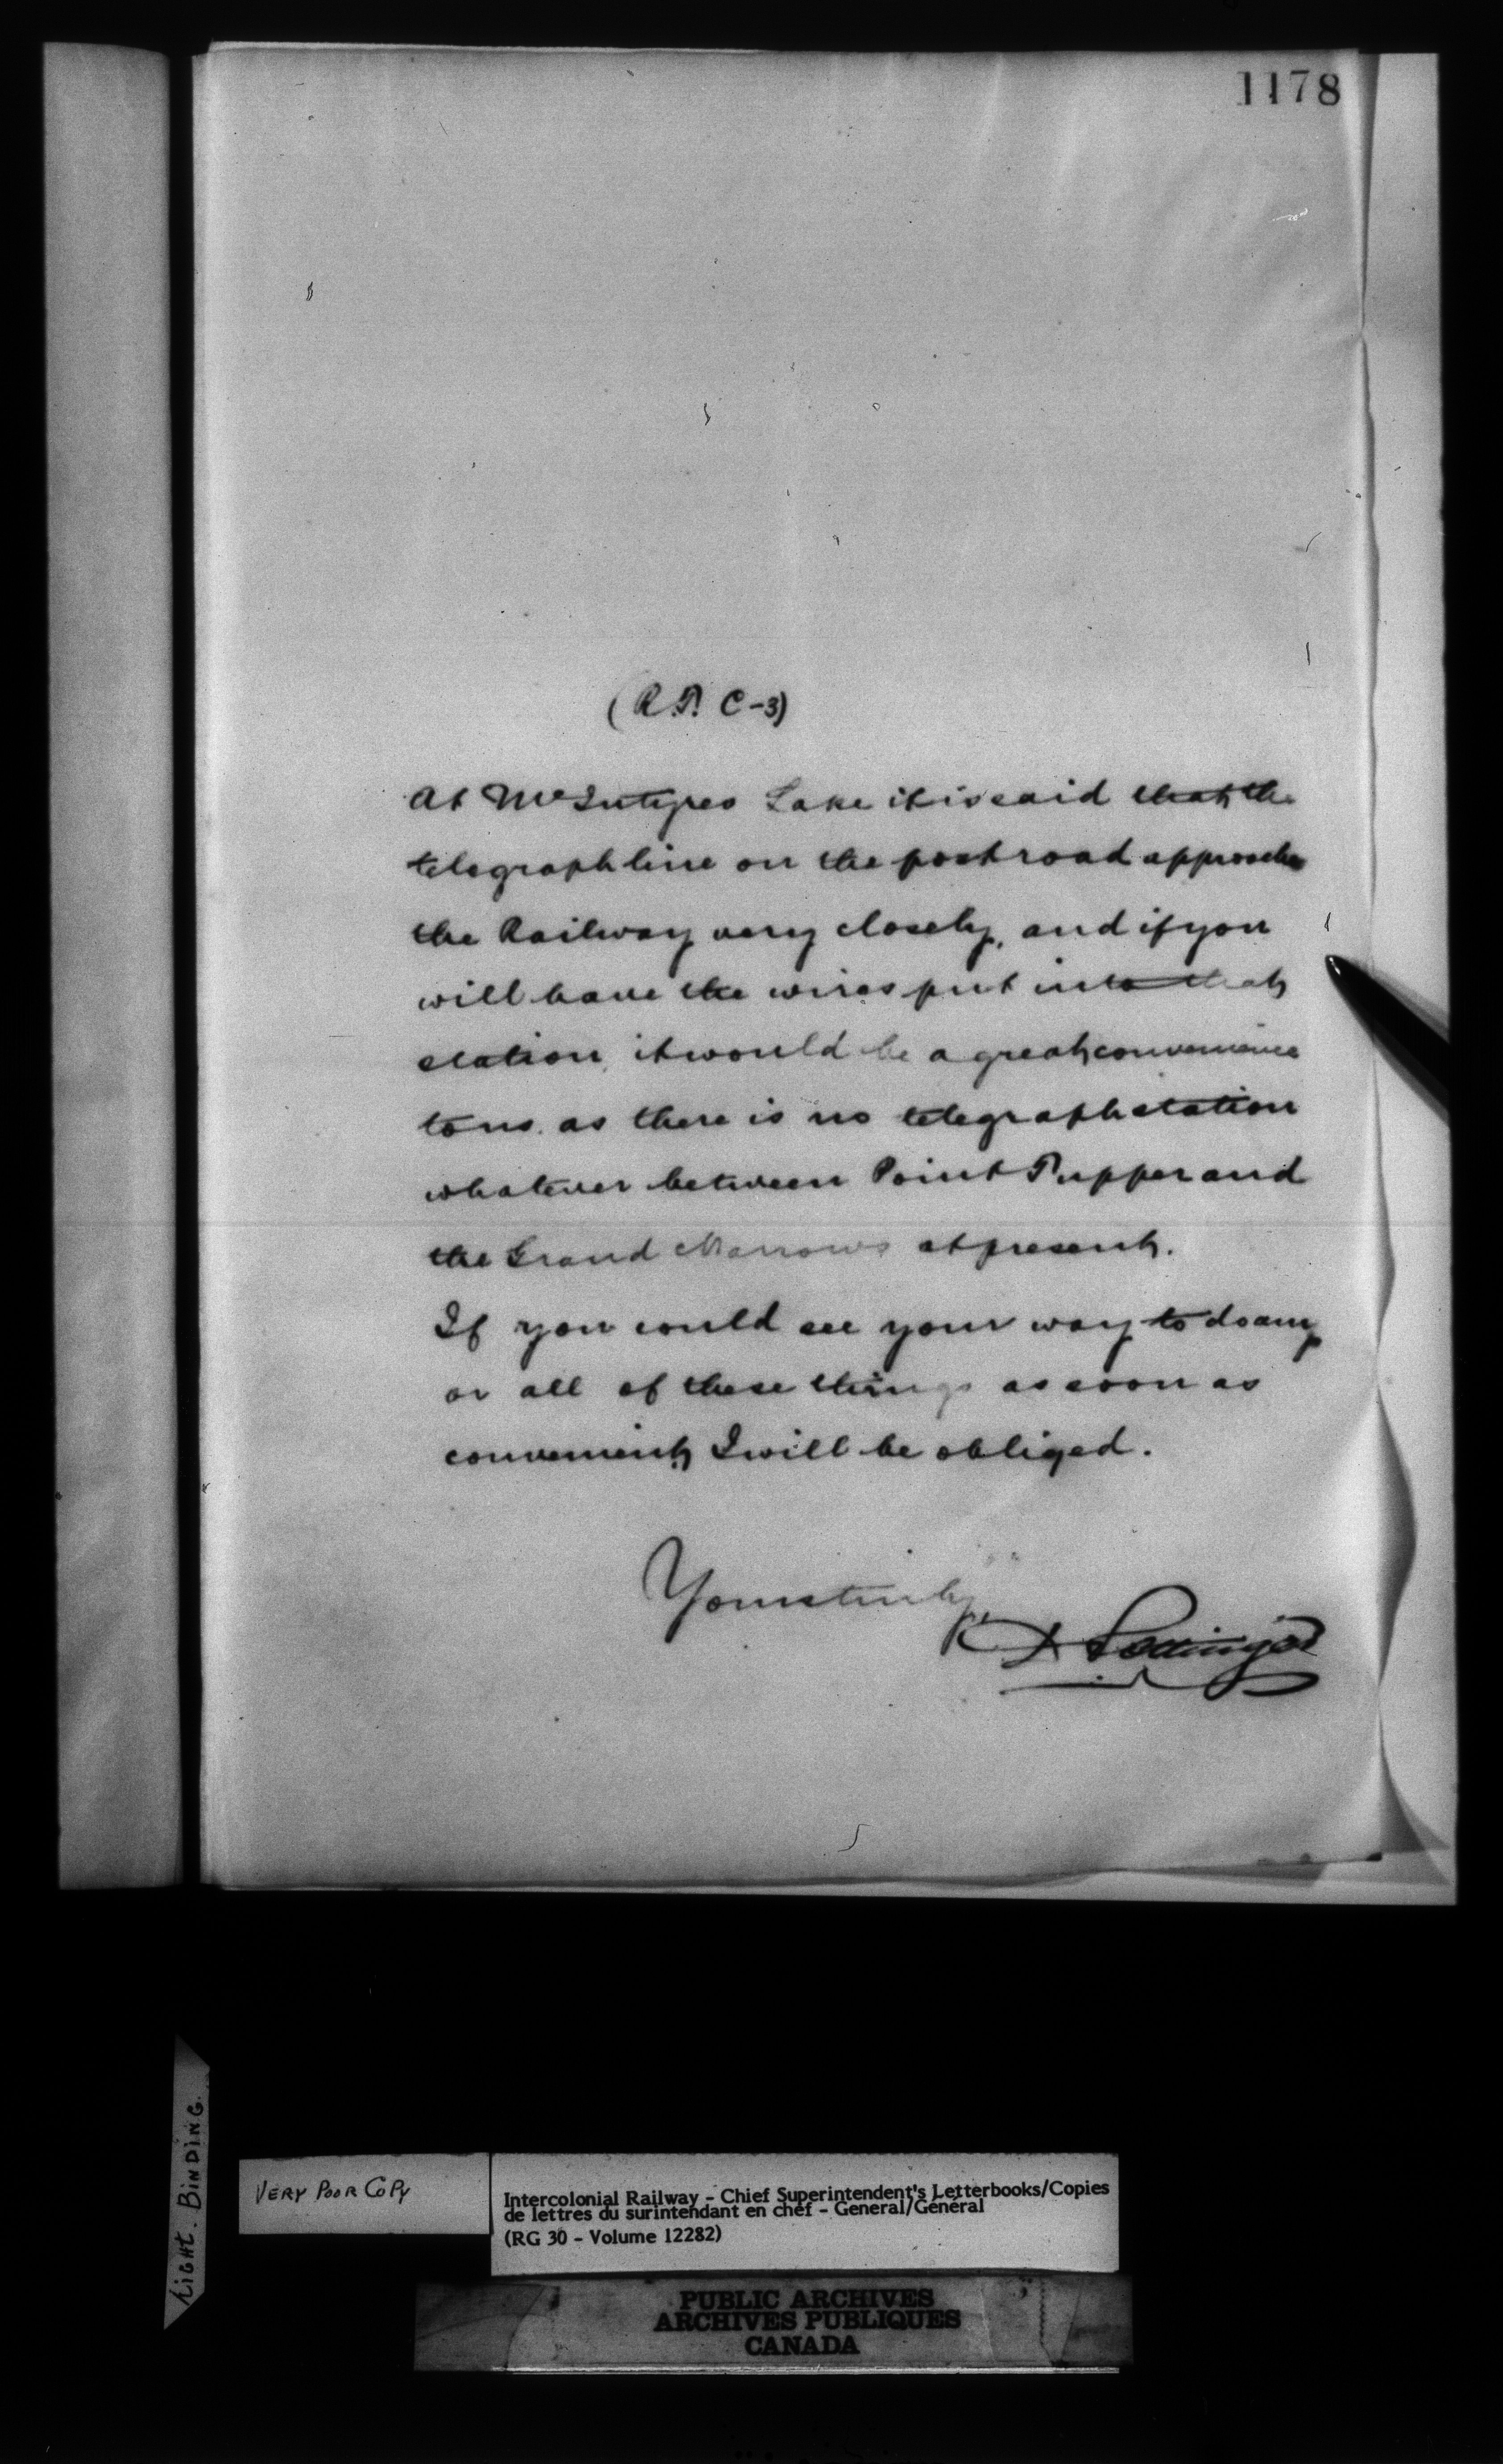 1178
(R.T. C-3)
At McIntyres Lake it is said that the
telegraph line on the post road approaches
the Railway very closely, and if you
will have the wires put into that
station, it would be a great convenience
to us. as there is no telegraph station
whatever between Point Tupper and
the Grand Narrows at present.
If you could see your way to do any
or all of these things as soon as
convenient, I will be obliged.
Yours truly
D Pottinger
TIGHT. BINDING.
VERY POOR COPY
Intercolonial Railway - Chief Superintendent's Letterbooks/Copies
de lettres du surintendant en chef - General/Général
(RG 30 - Volume 12282)
PUBLIC ARCHIVES
ARCHIVES PUBLIQUES
CANADA